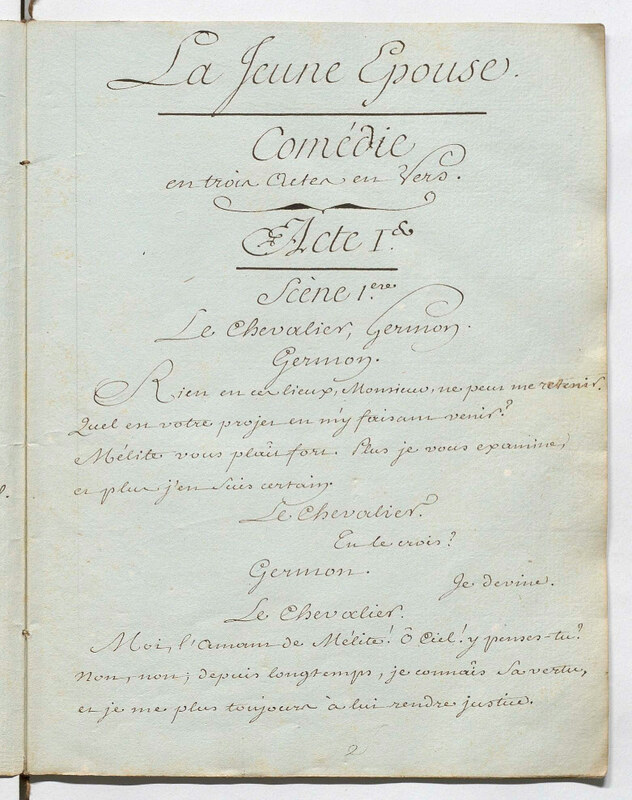 La Jeune Epouse.
Comédie
en trois Actes en Vers.
Acte I.er
Scène 1.ere
Le Chevalier, Germon.
Germon.
Rien en ces lieux, Monsieur, ne peut me retenir.
Quel est votre projet en m'y faisant venir?
Mélite vous plaît fort. Plus je vous examine,
et plus j'en suis certain.
Le Chevalier.
Tu le crois?
Germon.
Je devine.
Le Chevalier.
Moi, l'amant de Mélite! Ô Ciel! y penses-tu?
Non, non; depuis longtemps, je connais sa vertu,
et je me plus toujours à lui rendre justice.
2